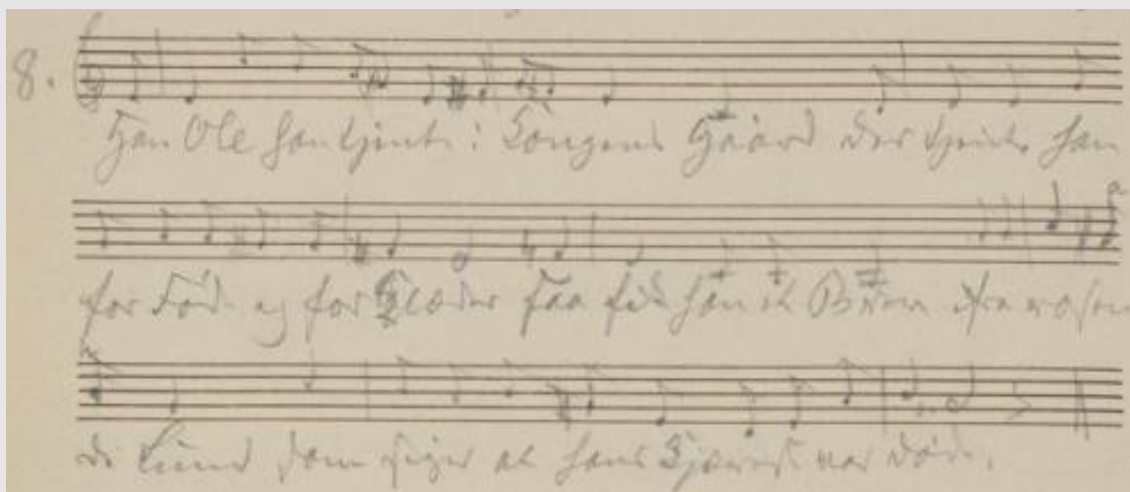 8.
Han Ole han tjente i Kongens Gaard der tjente han
for Föde og for Klæder saa fik han et Brev fra rosen
de Lund som siger at hans Kjæreste var döde.